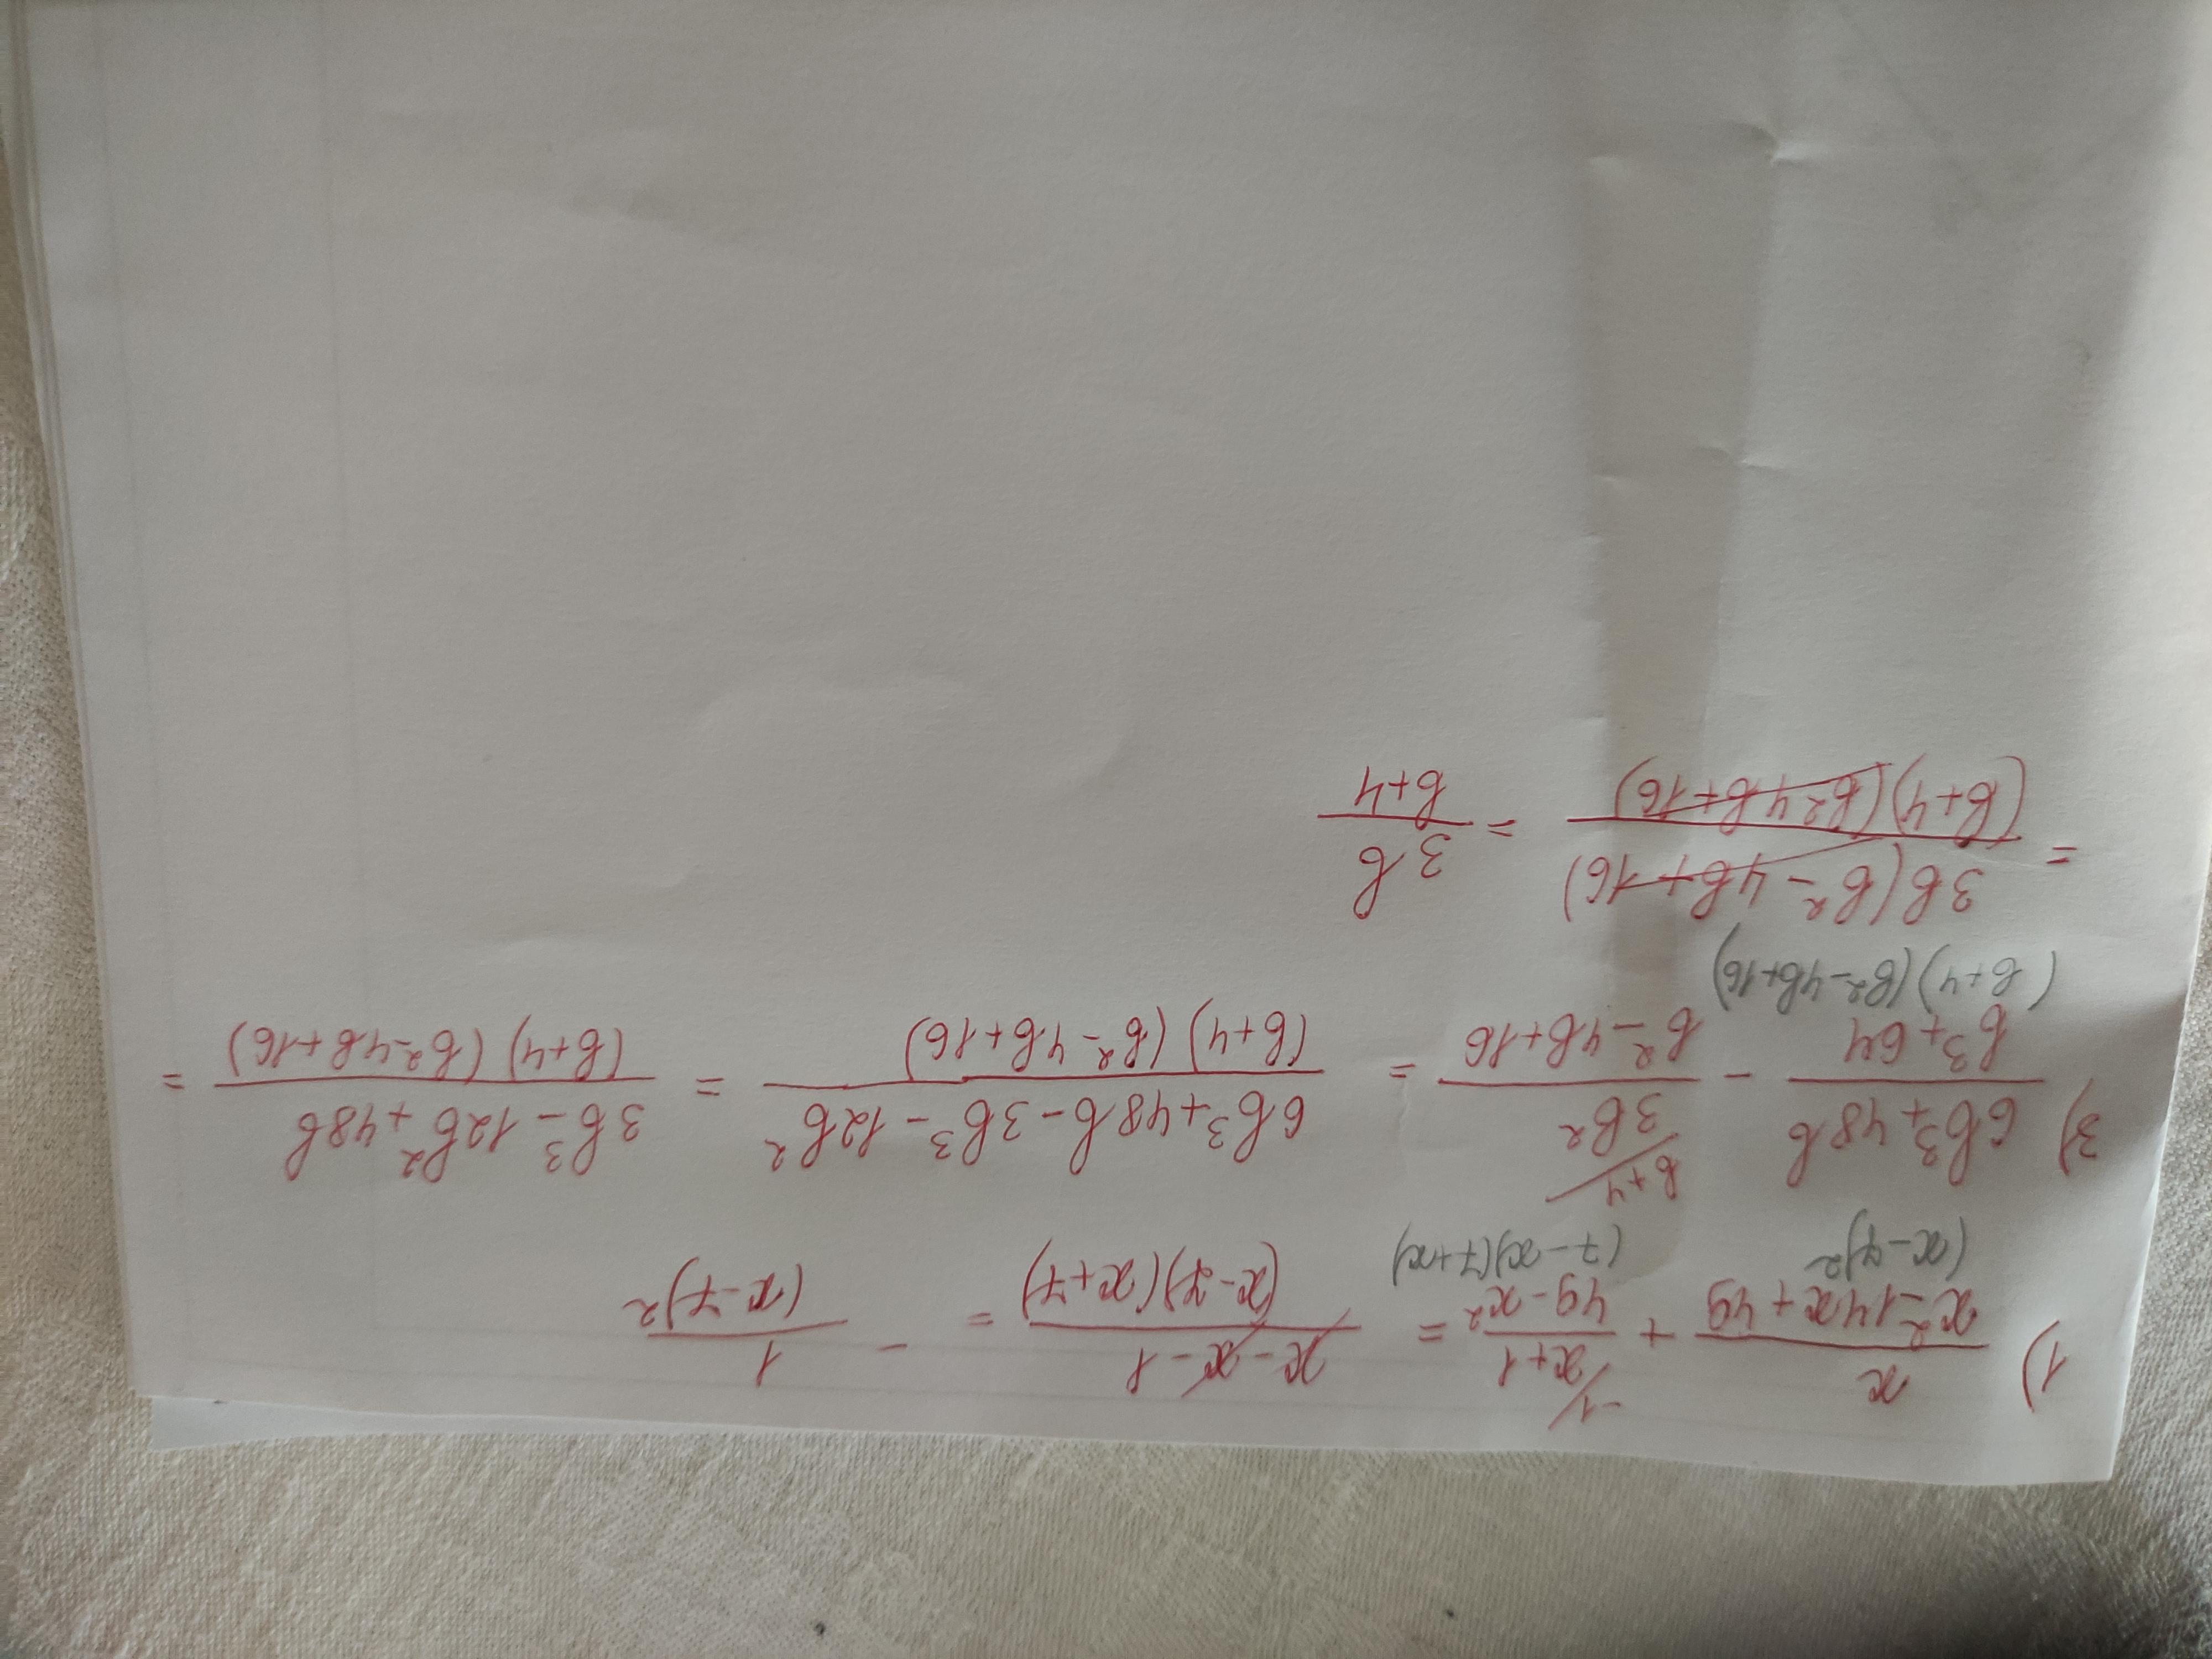 1) x/(x²-14x+49) + (x+1)/(49-x²) = (x-x-1)/((x-7)(x+7)) = - 1/(x-7)²
-1/
(x-7)² (7-x)(7+x)
3) (6b³+48b)/(b³+64) - (3b²)/(b²-4b+16) = (6b³+48b-3b³-12b²)/((b+4)(b²-4b+16)) = (3b³-12b²+48b)/((b+4)(b²-4b+16)) =
b+4/
(b+4)(b²-4b+16)
= (3b(b²-4b+16))/((b+4)(b²-4b+16)) = 3b/(b+4)